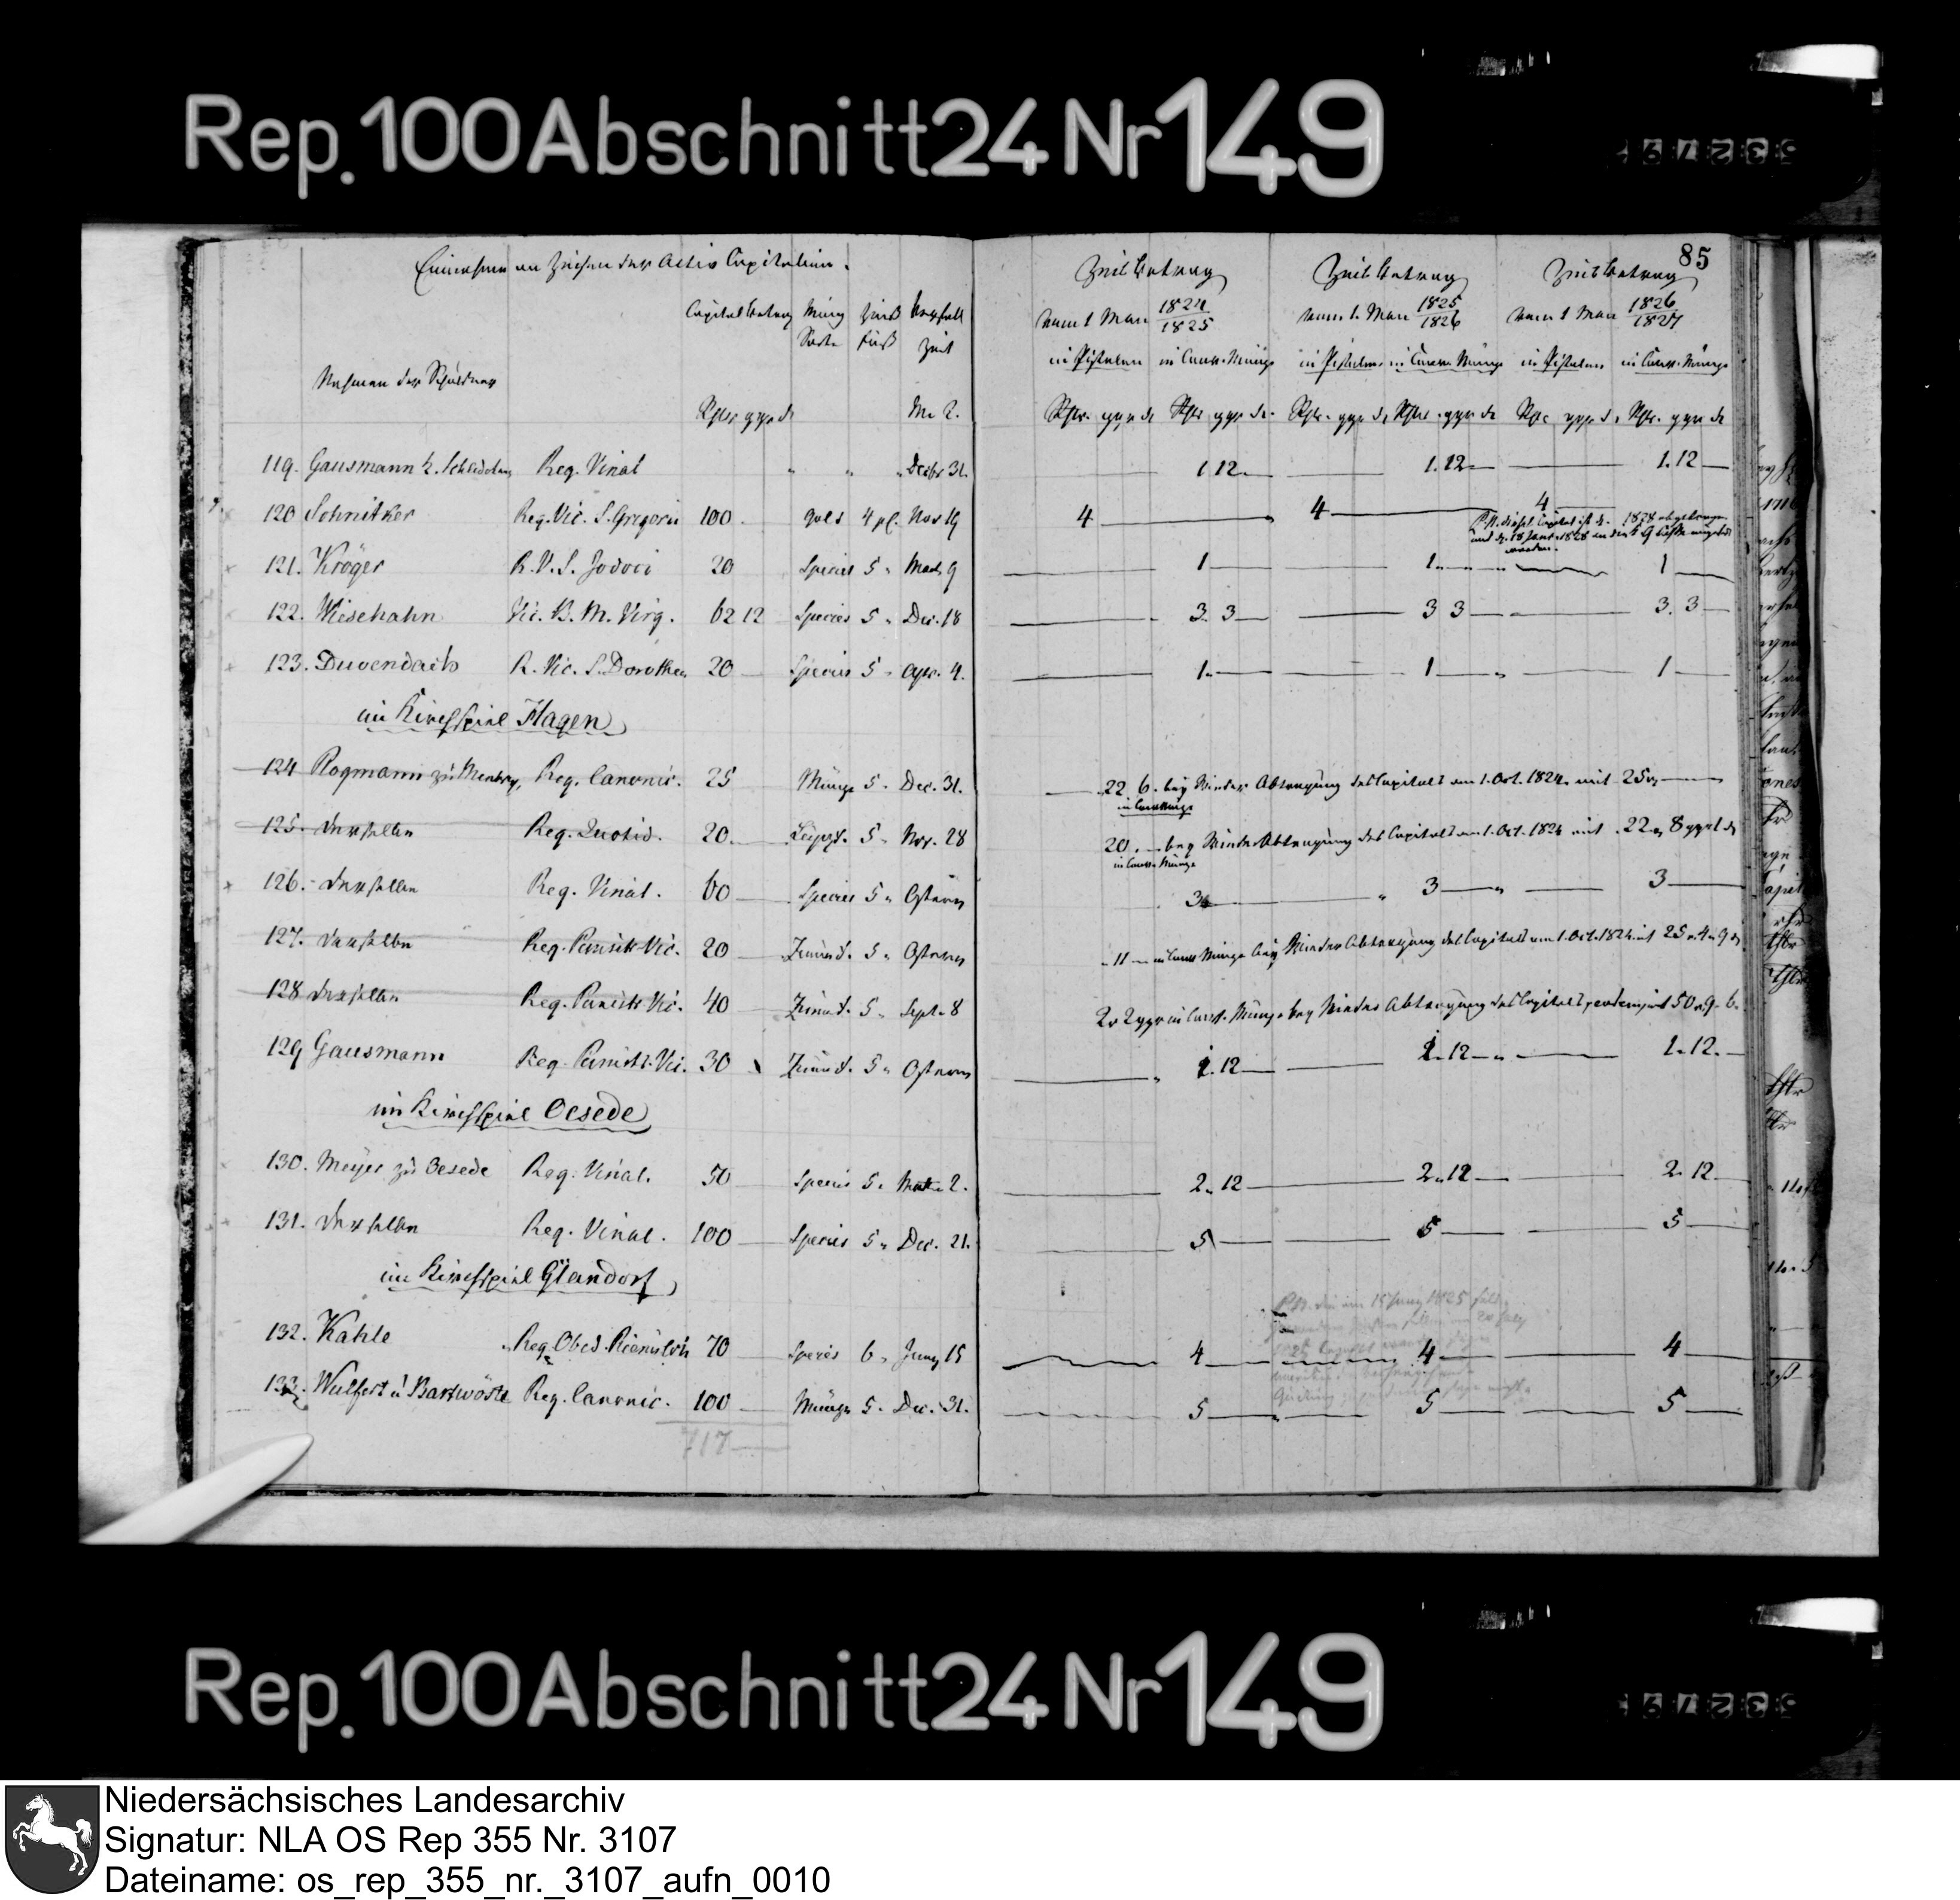 Rep. 100 Abschnitt 24 Nr 149
85
Einnahme an Zinsen der Activ Capitalien.
Nahmen der Schuldner
Capital betrag Münz Sorte Zins Fuß Verfall Zeit
Rthlr ggr d
Zeit betrag vom 1 May 1824/1825 in Pistolen in Conv. Münze
Zeit betrag vom 1. May 1825/1826 in Pistolen in Conv. Münze
Zeit betrag vom 1 May 1826/1827 in Pistolen in Conv. Münze
Rthlr. ggr d Rthlr ggr d. Rthlr. ggr d Rthlr. ggr d Rthlr ggr d. Rthlr. ggr d
119. Gausmann z. Reg. Vinal " " " Decbr 31. 1 12. 1. 12 1. 12
120 Schnitker Reg. Vic. S. Gregorii 100 Gold 4 pC. Nov 19 4 4 4
121. Kröger R. V. S. Jodoci 20 Species 5 " 9 1 1 1
122. Wiesehahn Vic. B. M. Virg. 62 12 Species 5 " Dec. 18 3. 3 3 3 3. 3
123. Duvendack R. Vic. S. Dorothea 20 Species 5 " Apr. 4. 1 1 1
im Kirchspiel Hagen
124 Rogmann zu Reg. Canonic. 25 Münze 5 " Dec. 31. 22 6. bey Wieder Abtragung des Capitals am 1. Oct. 1824. mit 25
in Conv Münze
125. derselbe Reg. Quotid. 20. 5 " Nov. 28 20. bey Wieder Abtragung des Capitals am 1. Oct. 1824 mit 22 8 ggr
in Conv. Münze
126. derselbe Reg. Vinal. 60 Species 5 " Ostern 3 3 3
127. derselbe Reg. Panist. Vic. 20 5 " Ostern 11 in Conv Münze bey Wieder Abtragung des Capitals am 1. Oct. 1824 mit 25 4 9
128 derselbe Reg. Panist. Vic. 40 5 " Sept. 8 2 2 ggr in Conv. Münze bey Wieder Abtragung des Capitals mit 50 9 6
129 Gausmann Reg. Panist. Vic. 30 5 " Ostern 1. 12 1. 12 1. 12.
im Kirchspiel Oesede
130. Meyer zu Oesede Reg. Vinal. 50 Species 5 " 2. 2. 12 2. 12 2. 12
131. derselbe Reg. Vinal. 100 Species 5 " Dec. 21. 5 5 5
im Kirchspiel Glandorf
132. Kahle Reg. Obed. 70 Species 6 " Juny 15 4 4 4
133. Wulfert u Bartwöste Reg. Canonic. 100 Münze 5 " Dec. 31. 5 5 5
717
Rep. 100 Abschnitt 24 Nr 149
Niedersächsisches Landesarchiv
Signatur: NLA OS Rep 355 Nr. 3107
Dateiname: os_rep_355_nr._3107_aufn_0010